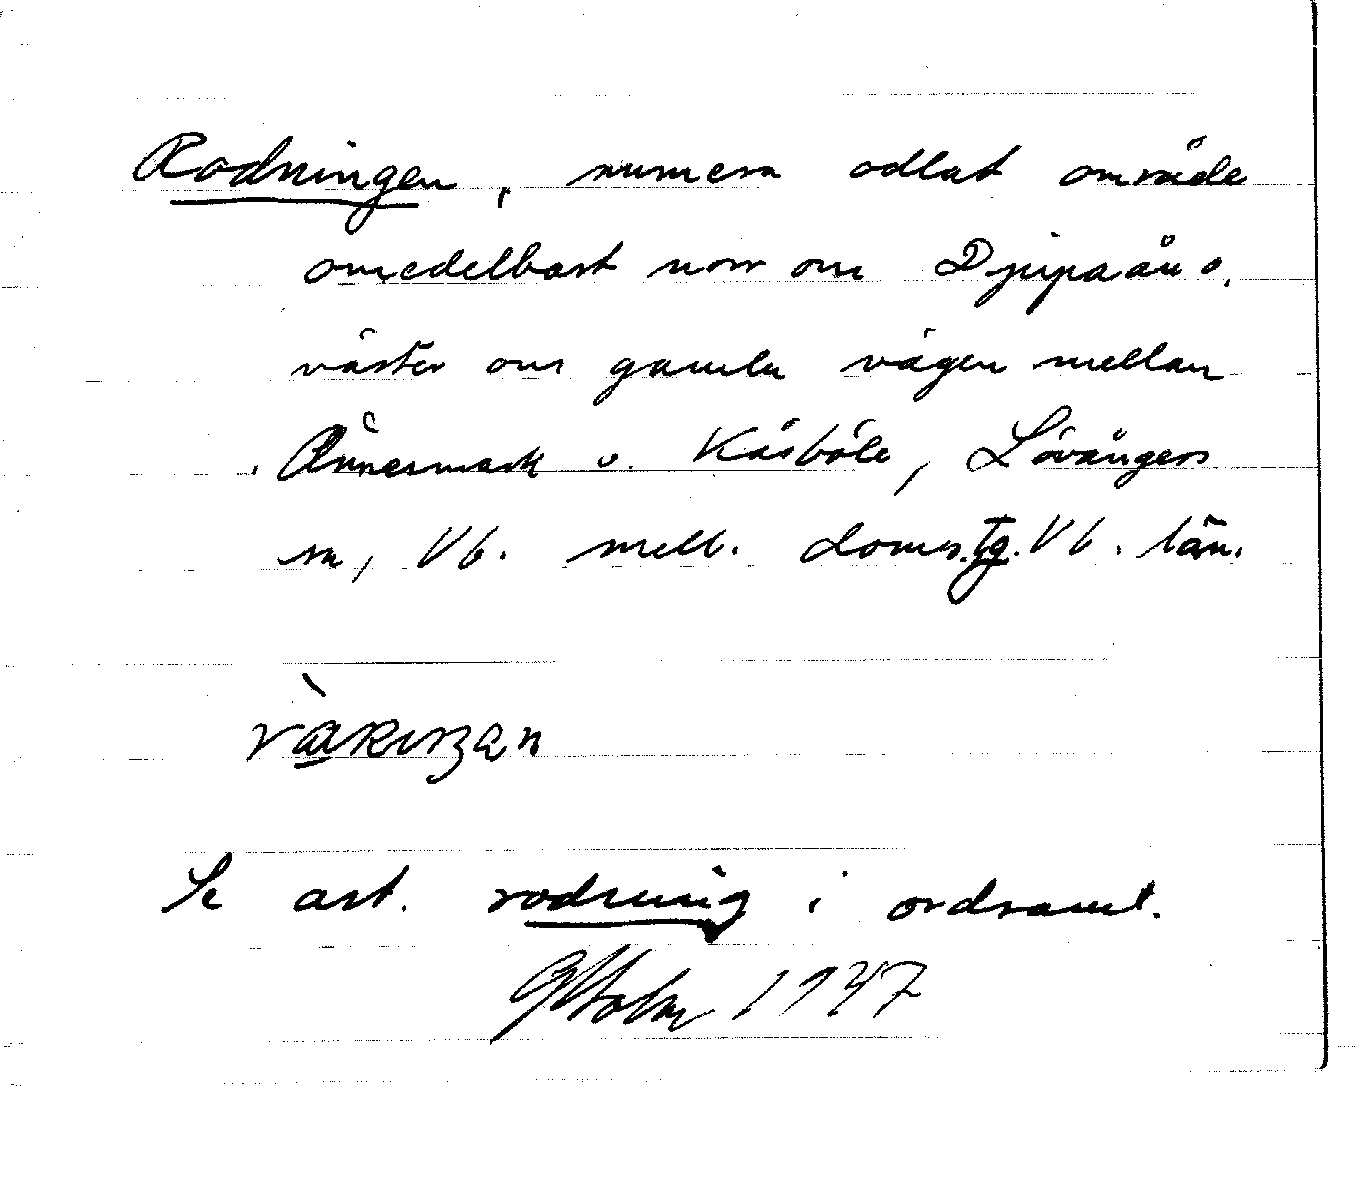 Rodningen, numera odlat område
omedelbart norr om Djupaån o.
väster om gamla vägen mellan
Ånnermark o. Kåsböle, Lövångers
sn, Vb. mell. doms.tg. Vb. län.
Se art. rodning i ordsaml.
GHolm 1947